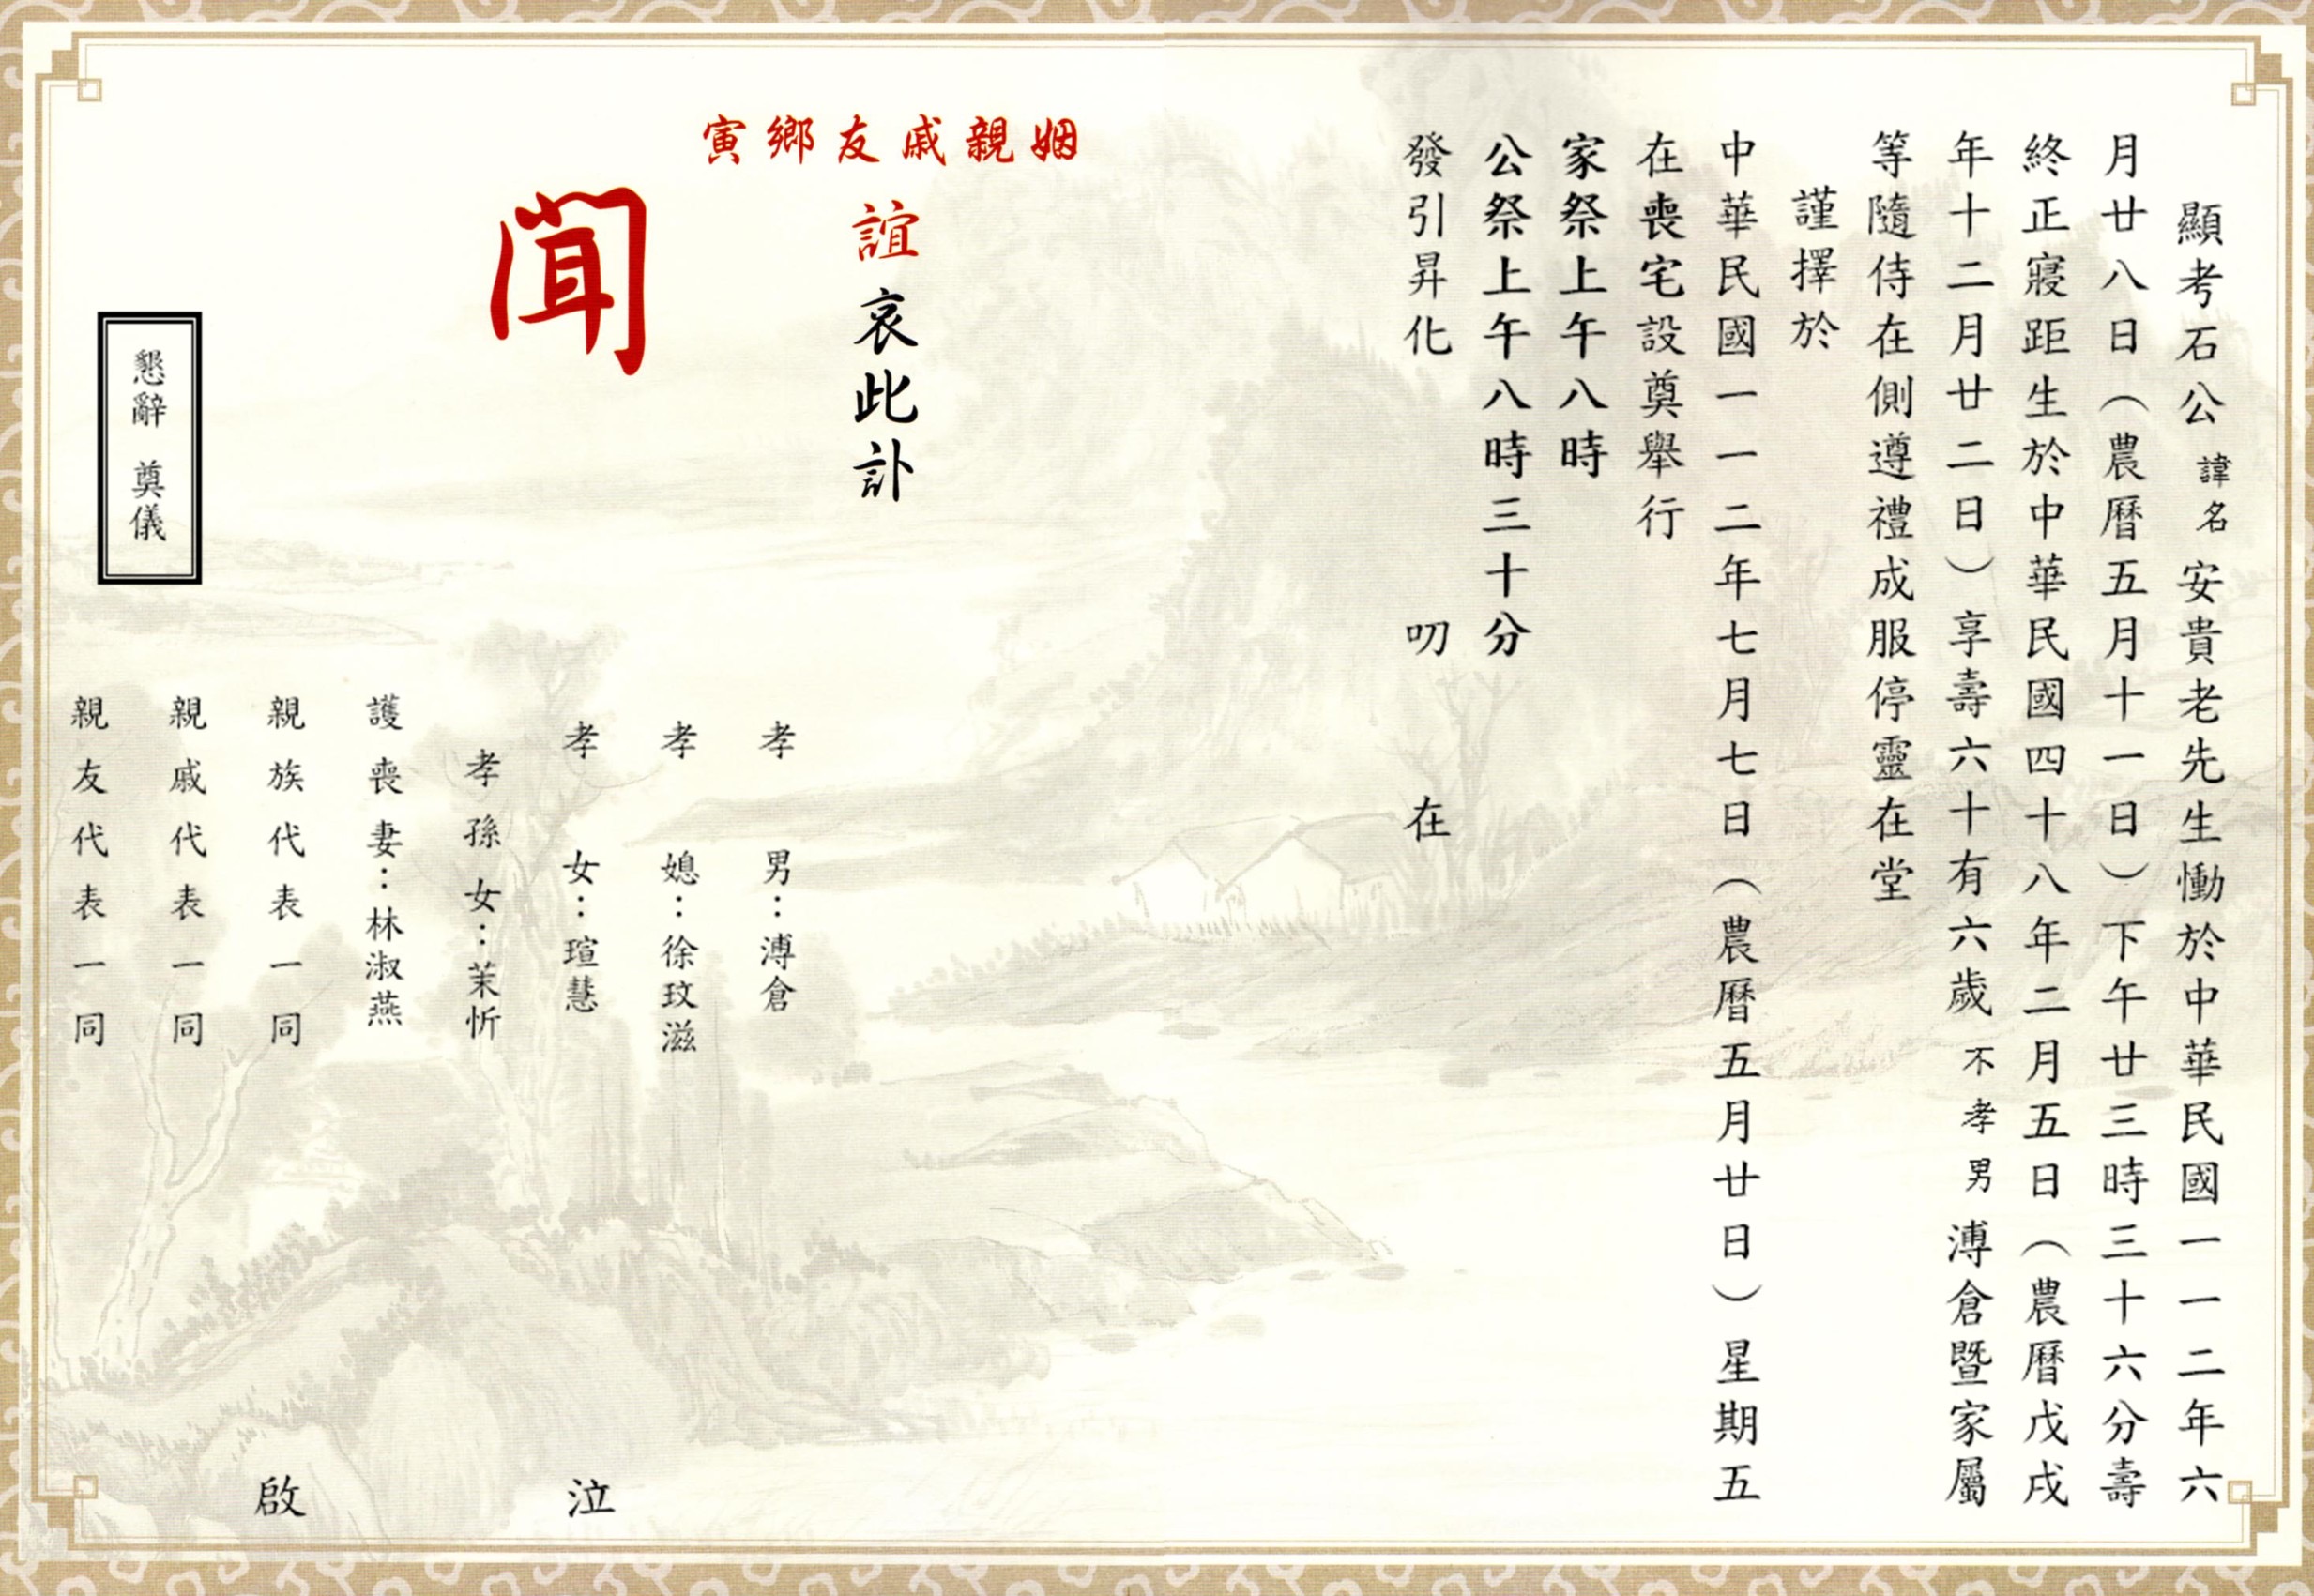 顯考石公諱名安貴老先生慟於中華民國一一二年六
月廿八日（農曆五月十一日）下午廿三時三十六分壽
終正寢距生於中華民國四十八年二月五日（農曆戊戌
年十二月廿二日）享壽六十有六歲不孝男溥倉暨家屬
等隨侍在側遵禮成服停靈在堂
謹擇於
中華民國一一二年七月七日（農曆五月廿日）星期五
在喪宅設奠舉行
家祭上午八時
公祭上午八時三十分
發引昇化 叨 在
姻親戚友鄉寅
誼哀此訃
聞
孝 男：溥倉
孝 媳：徐玟滋
孝 女：瑄慧
孝孫女：茉忻
護喪妻：林淑燕
親族代表一同
親戚代表一同
親友代表一同
泣 啟
懇辭 奠儀